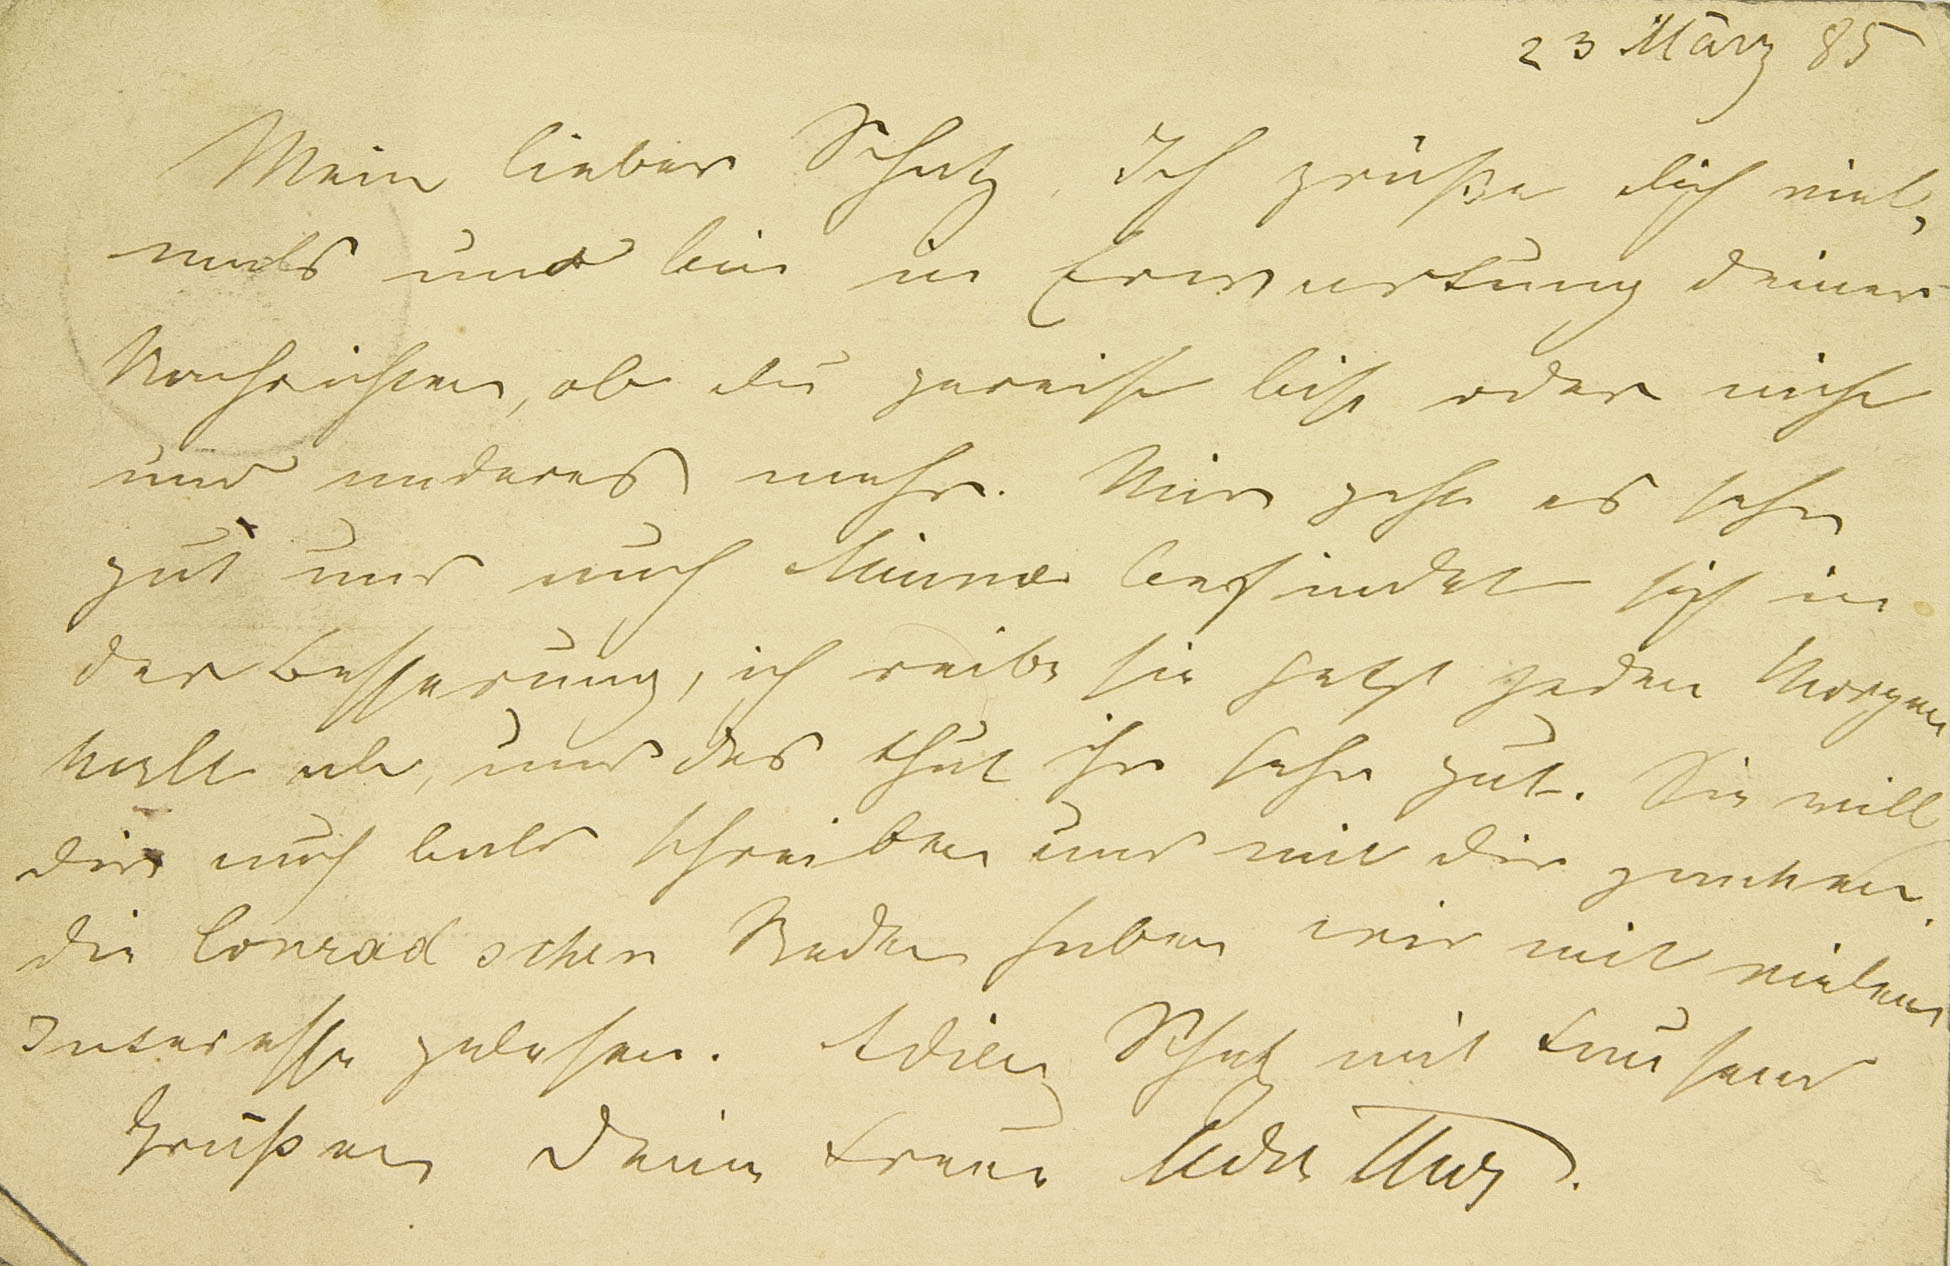 23 März 85
Mein lieber Schatz, Ich grüße dich viel-
mals und bin in Erwartung deiner
Nachrichten, ob du gereist bist oder nicht
und anderes mehr. Mir geht es sehr
gut und auch Minna befindet sich in
der Besserung, ich reibe sie jetzt jeden Morgen
kalt ab, und das thut ihr sehr gut. Sie will
dir auch bald schreiben und mit dir zanken.
die Conradschen Reden haben wir mit vielem
Interesse gelesen. Adieu Schatz mit tausend
Grüßen Deine treue